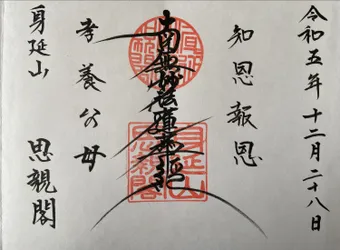 令和五年十二月二十八日
知恩報恩
南無妙法蓮華經
孝養父母
身延山 思親閣
身延山
思親閣